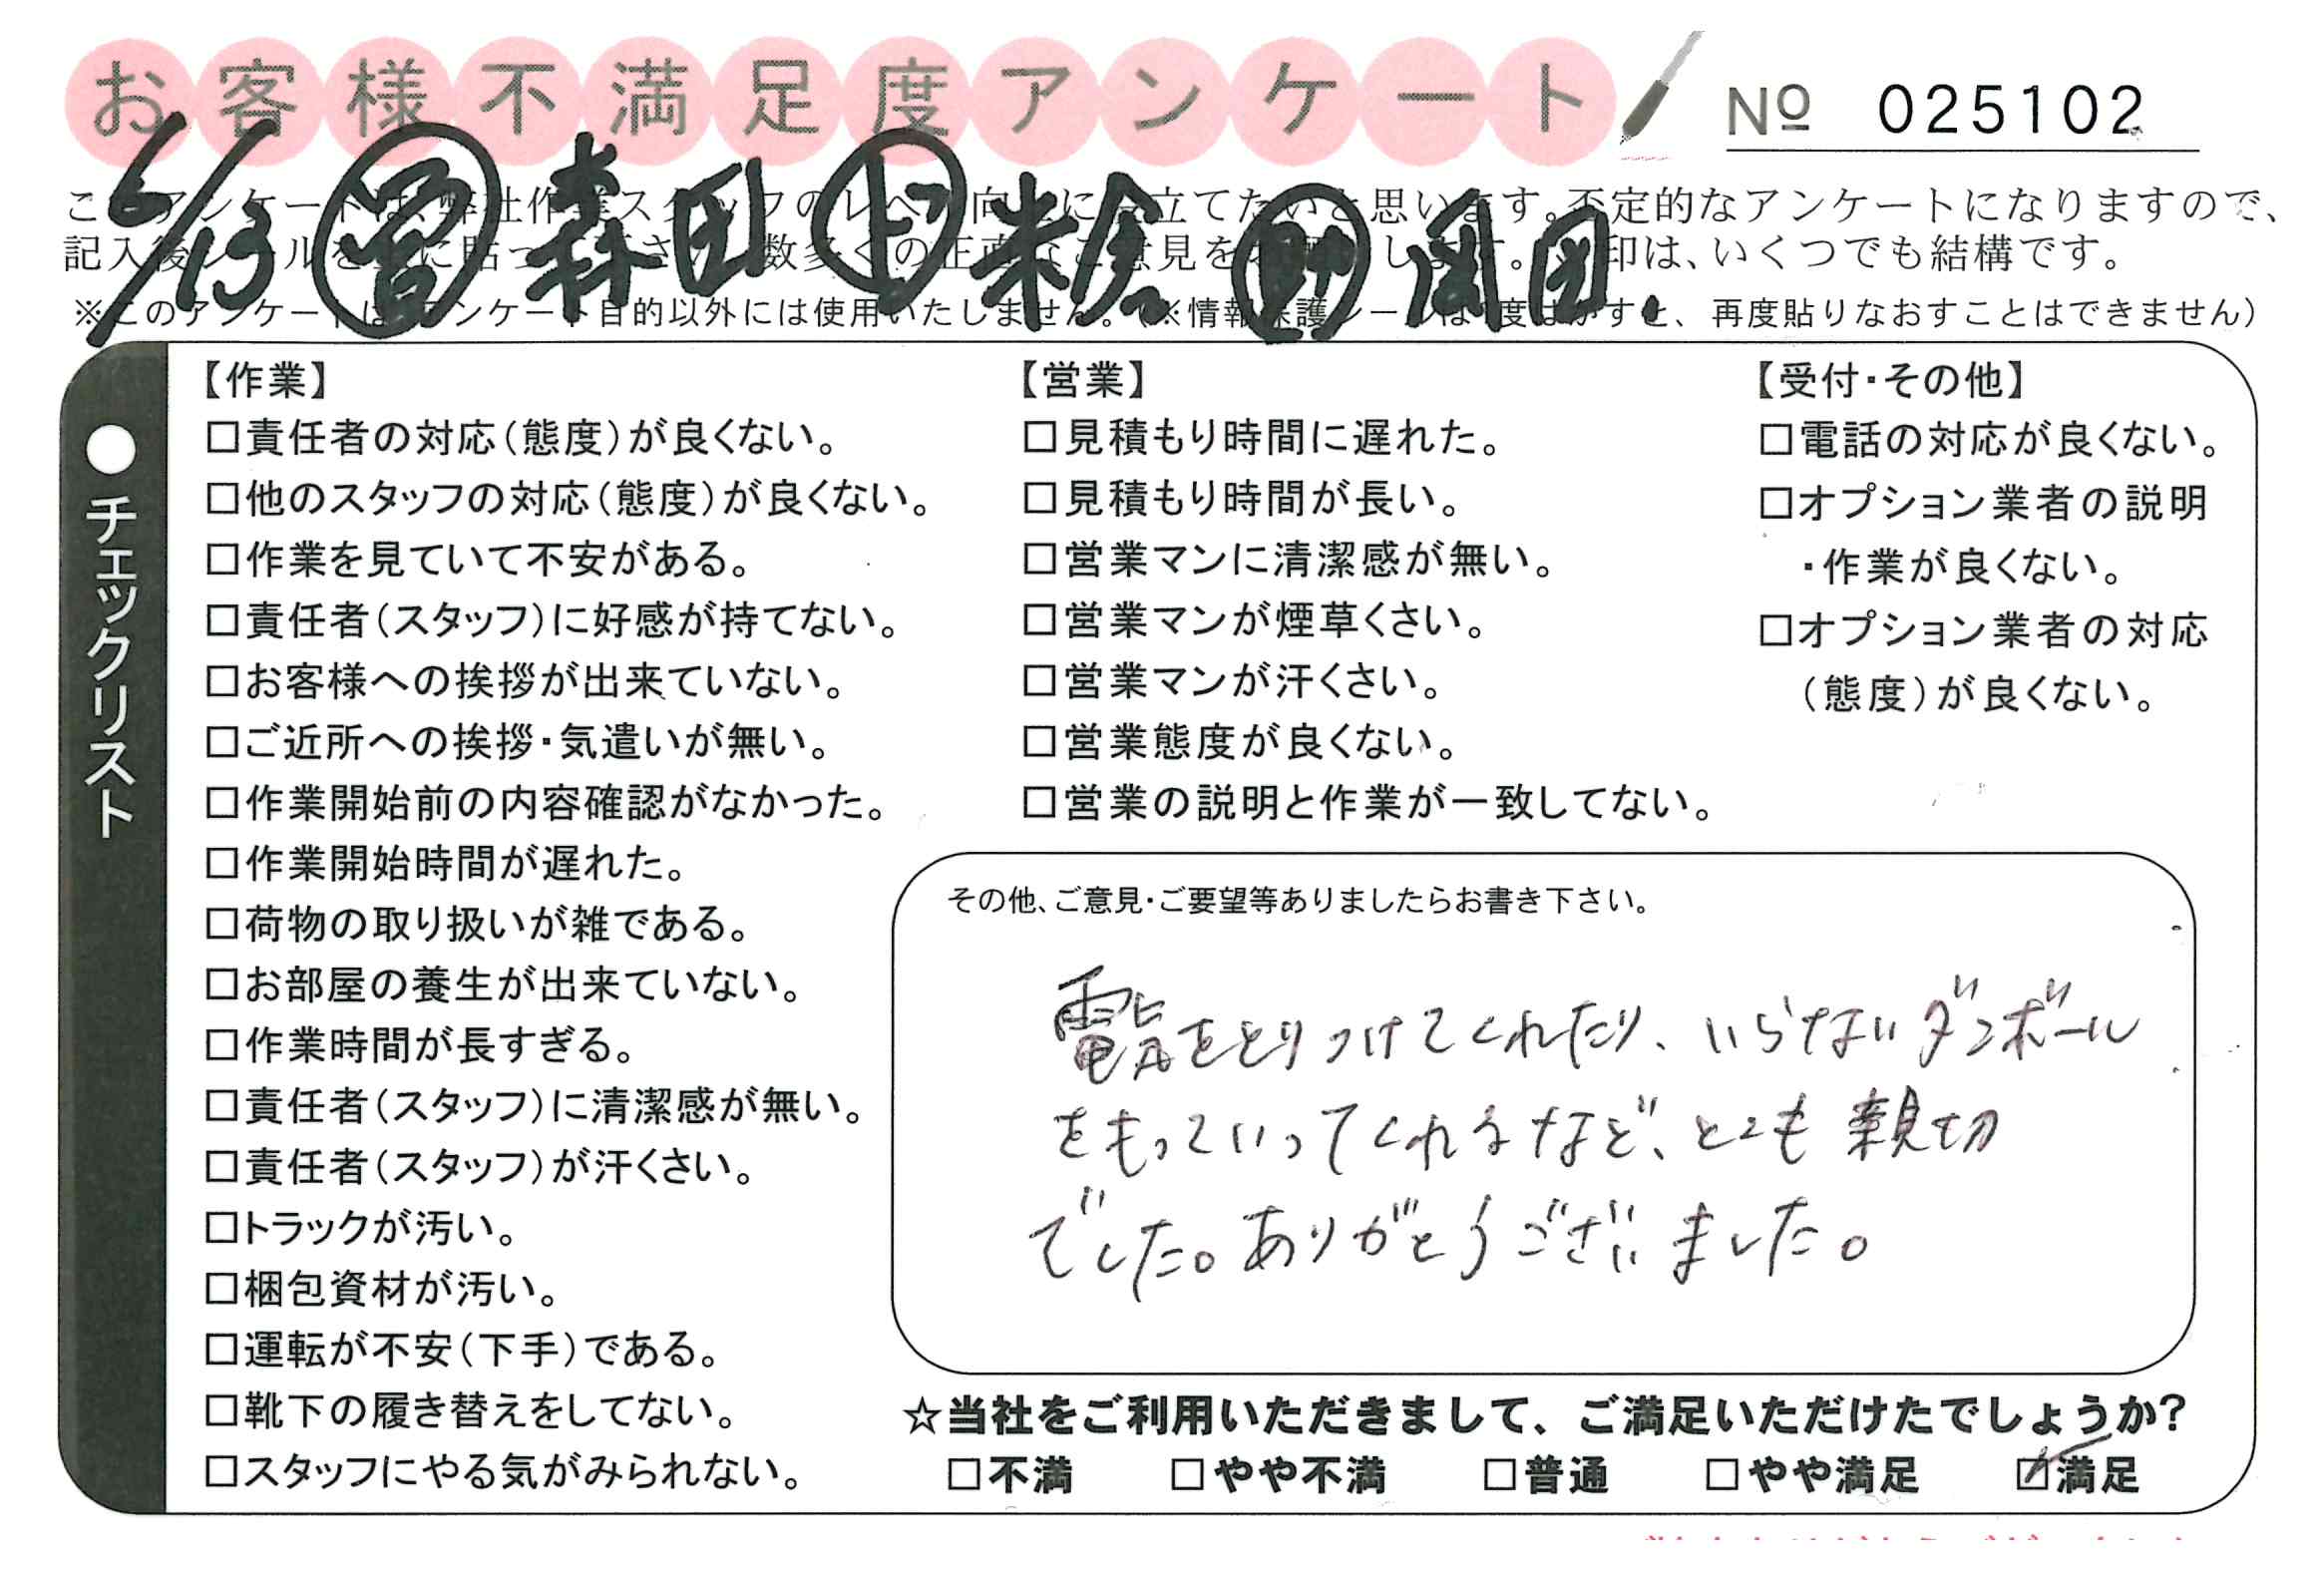 お客様不満足度アンケート
No 025102
6/13 営 森田 上 米倉 助 岡田
このアンケートは、弊社作業スタッフのレベル向上に役立てたいと思います。不定的なアンケートになりますので、
記入後シールを上に貼って下さい。数多くの正直なご意見をお願いします。 印は、いくつでも結構です。
※このアンケートは、アンケート目的以外には使用いたしません。(※情報保護シールは1度はがすと、再度貼りなおすことはできません)
●チェックリスト
【作業】
□責任者の対応(態度)が良くない。
□他のスタッフの対応(態度)が良くない。
□作業を見ていて不安がある。
□責任者(スタッフ)に好感が持てない。
□お客様への挨拶が出来ていない。
□ご近所への挨拶・気遣いが無い。
□作業開始前の内容確認がなかった。
□作業開始時間が遅れた。
□荷物の取り扱いが雑である。
□お部屋の養生が出来ていない。
□作業時間が長すぎる。
□責任者(スタッフ)に清潔感が無い。
□責任者(スタッフ)が汗くさい。
□トラックが汚い。
□梱包資材が汚い。
□運転が不安(下手)である。
□靴下の履き替えをしてない。
□スタッフにやる気がみられない。
【営業】
□見積もり時間に遅れた。
□見積もり時間が長い。
□営業マンに清潔感が無い。
□営業マンが煙草くさい。
□営業マンが汗くさい。
□営業態度が良くない。
□営業の説明と作業が一致してない。
【受付・その他】
□電話の対応が良くない。
□オプション業者の説明
・作業が良くない。
□オプション業者の対応
(態度)が良くない。
その他、ご意見・ご要望等ありましたらお書き下さい。
電気をとりつけてくれたり、いらないダンボール
をもっていってくれるなど、とても親切
でした。ありがとうございました。
☆当社をご利用いただきまして、ご満足いただけたでしょうか?
□不満 □やや不満 □普通 □やや満足 ☑満足